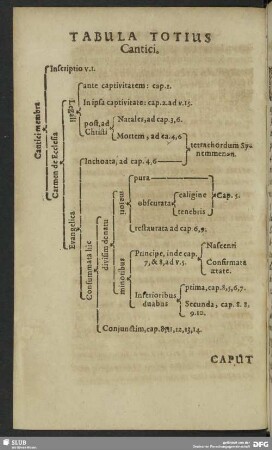 TABULA TOTIUS
Cantici.
Cantici membra
Inscriptio v.1.
Carmen de Ecclesia
Legali
ante captivitatem: cap.1.
In ipsa captivitate: cap.2.ad v.15.
post, ad Christi
Natales, ad cap.3,6.
Mortem, ad ca.4,6
tetrachordum Synemmenωn.
Evangelica
Inchoata, ad cap. 4,6
Consummata hic
divisim de natu
majori
pura
obscurata
caligine
tenebris
Cap. 5.
restaurata ad cap.6,9.
minoribus
Principe, inde cap.
7, & 8, ad v.5.
Nascenti
Confirmata
ætate.
Inferioribus
duabus
prima, cap.8,5,6,7.
Secunda, cap. 8. 8,
9.10.
Conjunctim, cap.8,11,12,13,14.
CAPUT
SLUB
DFG